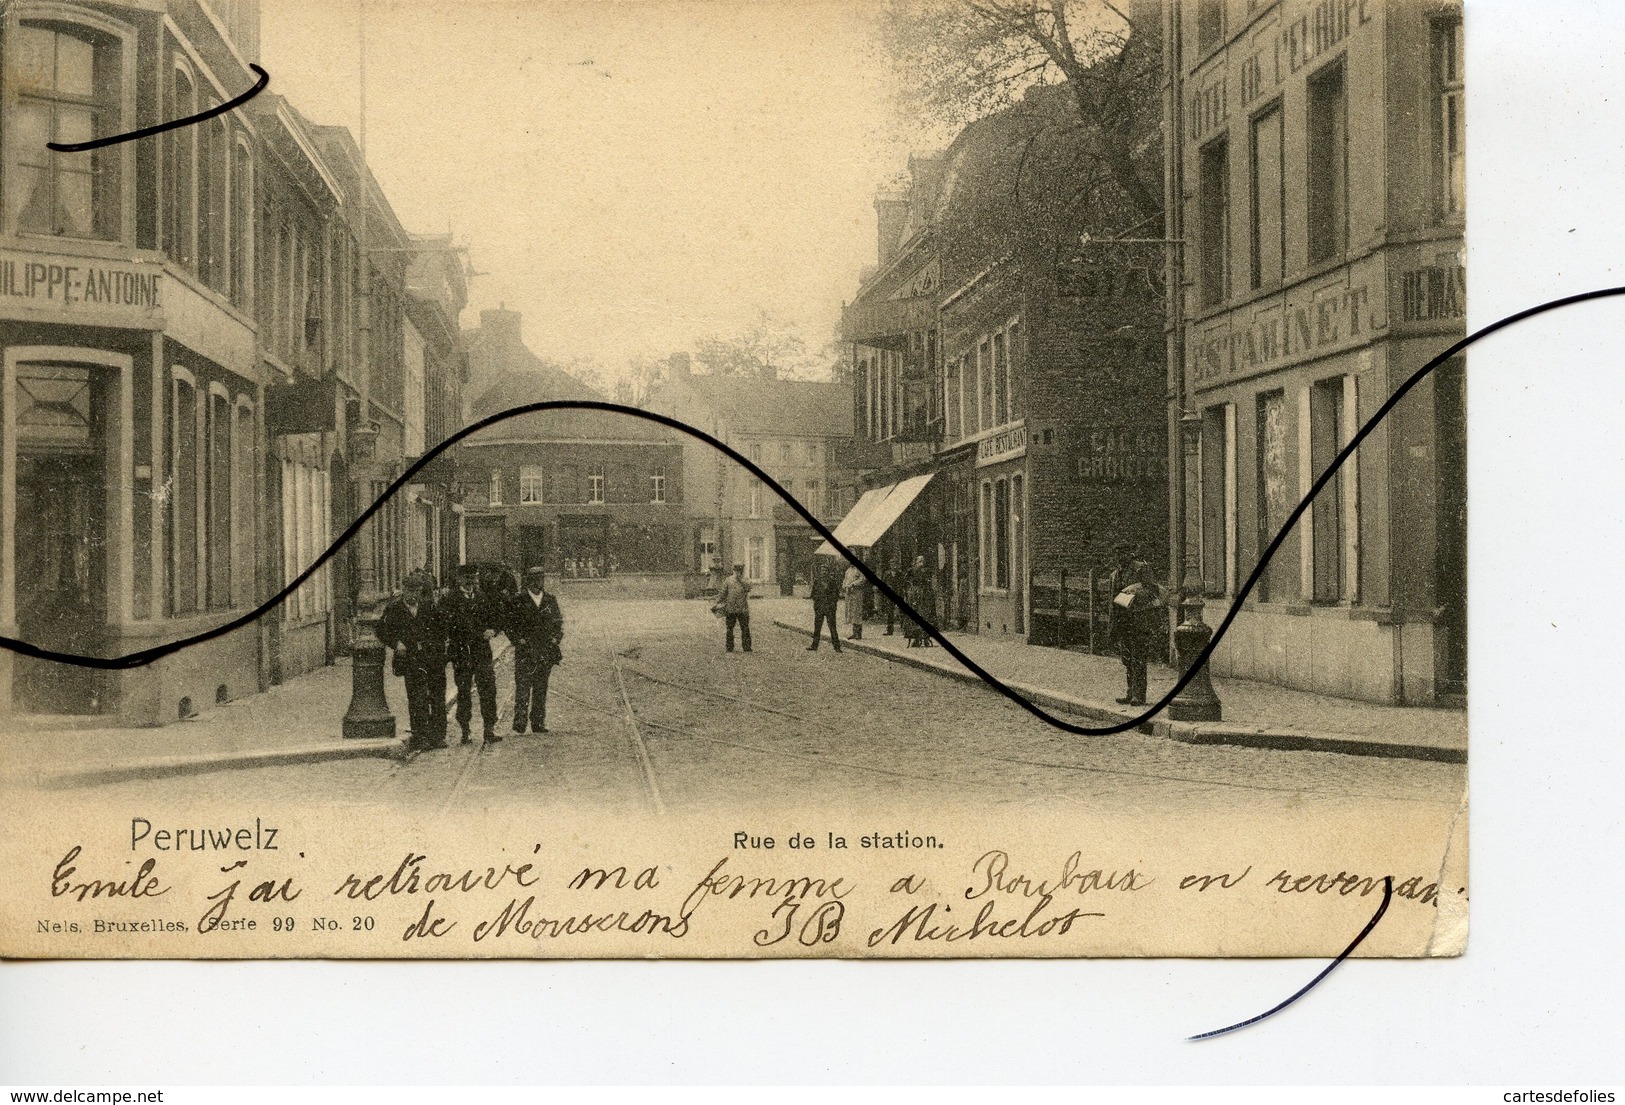 HÔTEL DE L'EUROPE
ILIPPE-ANTOINE
ESTAMINET
CAFÉ RESTAURANT
Peruwelz
Rue de la station.
Emile j'ai retrouvé ma femme a Roubaix en revenant
Nels, Bruxelles, Serie 99 No. 20
de Mouscrons JB Michelot
www.delcampe.net
cartesdefolies